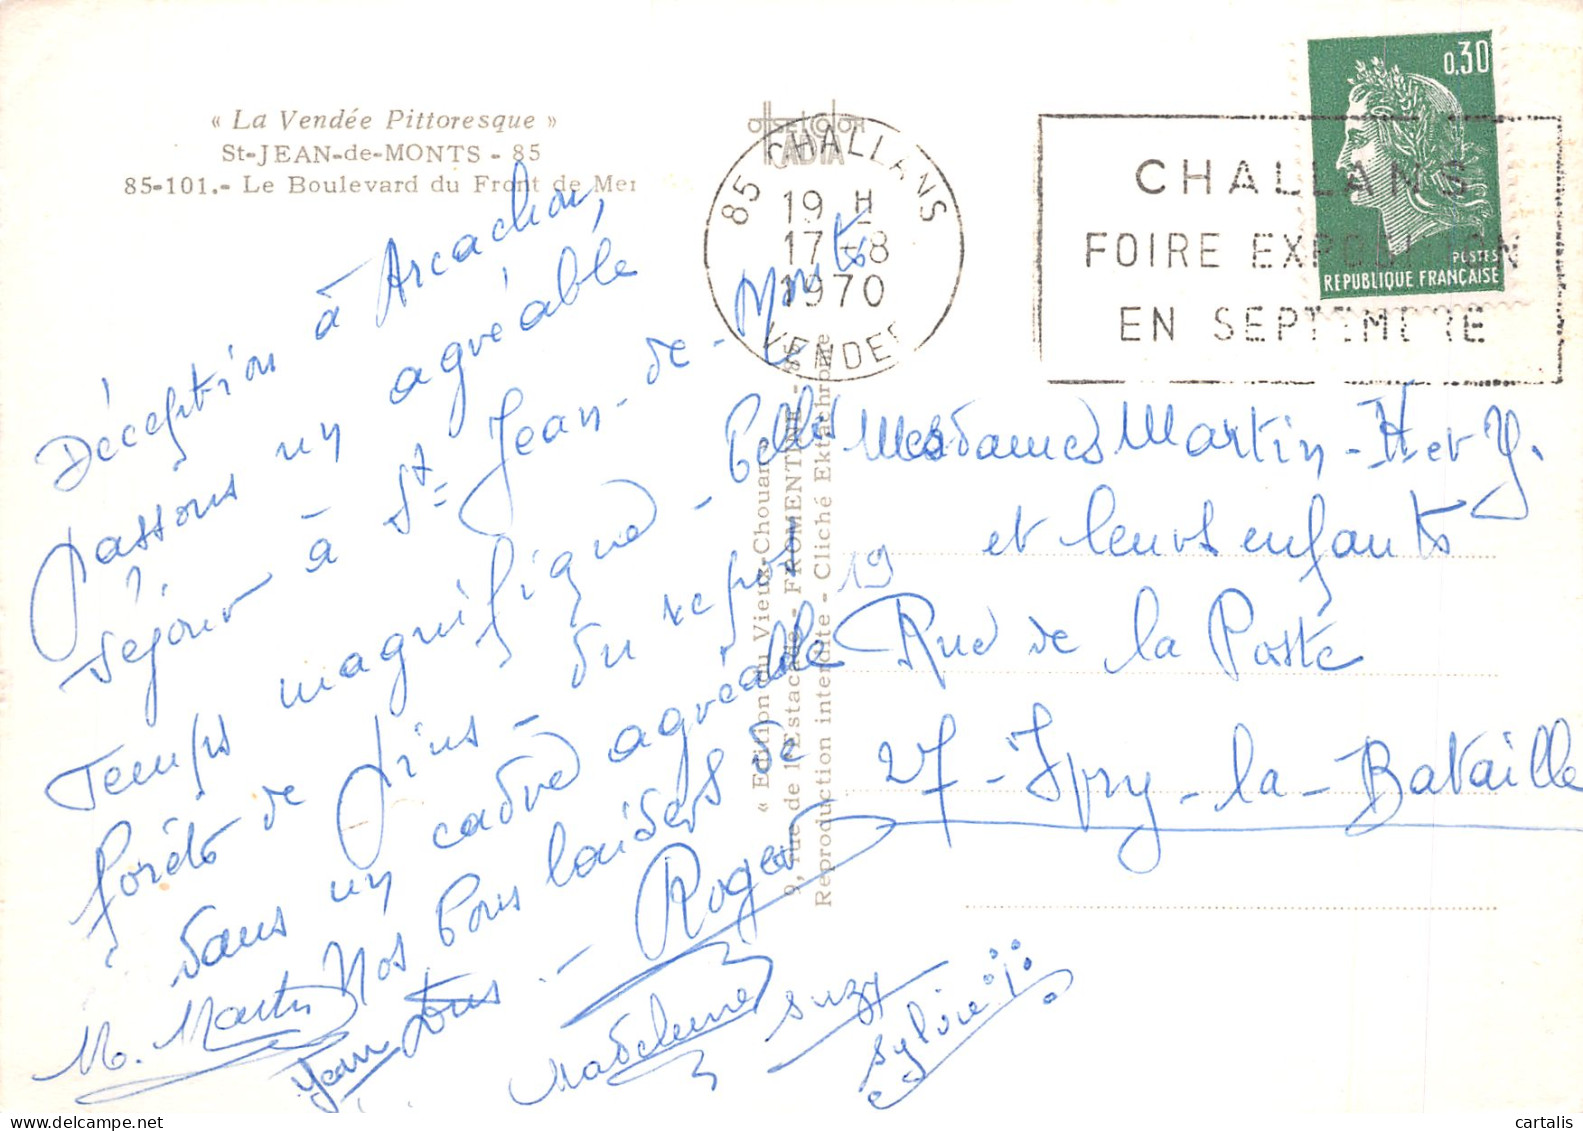 « La Vendée Pittoresque »
St-JEAN-de-MONTS - 85
85-101.- Le Boulevard du Front de Mer
Déception à Arcachon,
passons un agréable
séjour à St Jean-de-Monts
Temps magnifique - Belles
forêts de pins - du repos
dans un cadre agréable
Nos bons baisers de
Tous - Roger
M. Martin
Jean
Madeleine
Suzy
Sylvie
OFFSETCOLOR
CADIA
« Edition du Vieux-Chouan »
9, rue de l'Estacade - FROMENTINE - 85
Reproduction interdite - Cliché Ektachrome
85 CHALLANS
19 H
17-8
1970
VENDEE
CHALLANS
FOIRE EXPOSITION
EN SEPTEMBRE
0,30
POSTES
REPUBLIQUE FRANÇAISE
Mesdames Martin - H et Y.
et leurs enfants
19 Rue de la Poste
27 - Ivry-la-Bataille
cartalis
www.delcampe.net